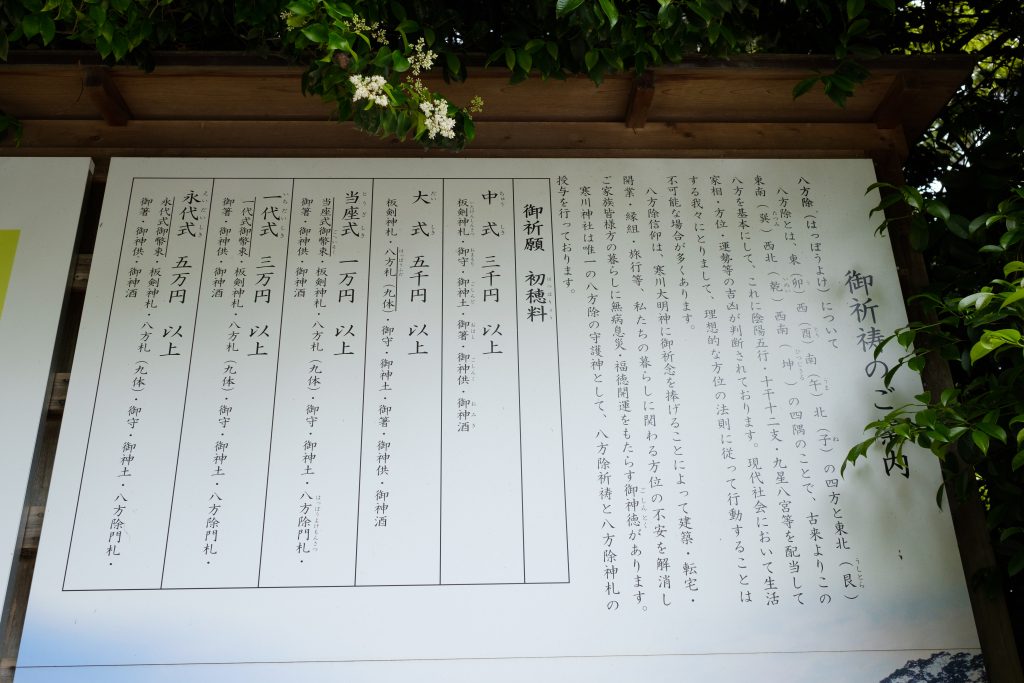 御祈祷のご 内
八方除（はっぽうよけ）について
八方除とは、東（卯）西（酉）南（午）北（子）の四方と東北（艮）
東南（巽）西北（乾）西南（坤）の四隅のことで、古来よりこの
八方を基本にして、これに陰陽五行・十干十二支・九星八宮等を配当して
家相・方位・運勢等の吉凶が判断されております。現代社会において生活
する我々にとりまして、理想的な方位の法則に従って行動することは
不可能な場合が多くあります。
八方除信仰は、寒川大明神に御祈念を捧げることによって建築・転宅・
開業・縁組・旅行等、私たちの暮らしに関わる方位の不安を解消し
ご家族皆様方の暮らしに無病息災・福徳開運をもたらす御神徳があります。
寒川神社は唯一の八方除の守護神として、八方除祈祷と八方除神札の
授与を行っております。
御祈願 初穂料
中式 三千円 以上
板剣神札・御守・御神土・御箸・御神供・御神酒
大式 五千円 以上
板剣神札・八方札（九体）・御守・御神土・御箸・御神供・御神酒
当座式 一万円 以上
当座式御幣束・板剣神札・八方札（九体）・御守・御神土・八方除門札・
御箸・御神供・御神酒
一代式 三万円 以上
一代式御幣束・板剣神札・八方札（九体）・御守・御神土・八方除門札・
御箸・御神供・御神酒
永代式 五万円 以上
永代式御幣束・板剣神札・八方札（九体）・御守・御神土・八方除門札・
御箸・御神供・御神酒